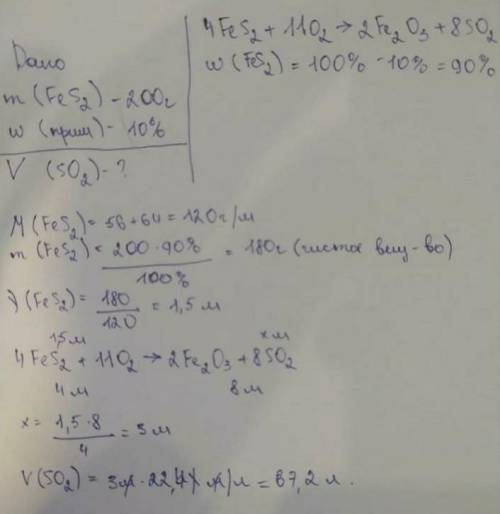 Дано
m (FeS₂) - 200г
w (прим) - 10%
V (SO₂) - ?
4FeS₂ + 11O₂ → 2Fe₂O₃ + 8SO₂
w (FeS₂) = 100% - 10% = 90%
M (FeS₂) = 56 + 64 = 120г/м
m (FeS₂) = 200 · 90% / 100% = 180г (чистое вещ-во)
λ (FeS₂) = 180 / 120 = 1,5 м
1,5м xм
4FeS₂ + 11O₂ → 2Fe₂O₃ + 8SO₂
4м 8м
x = 1,5 · 8 / 4 = 3м
V (SO₂) = 3м · 22,4 л/м = 67,2 л.